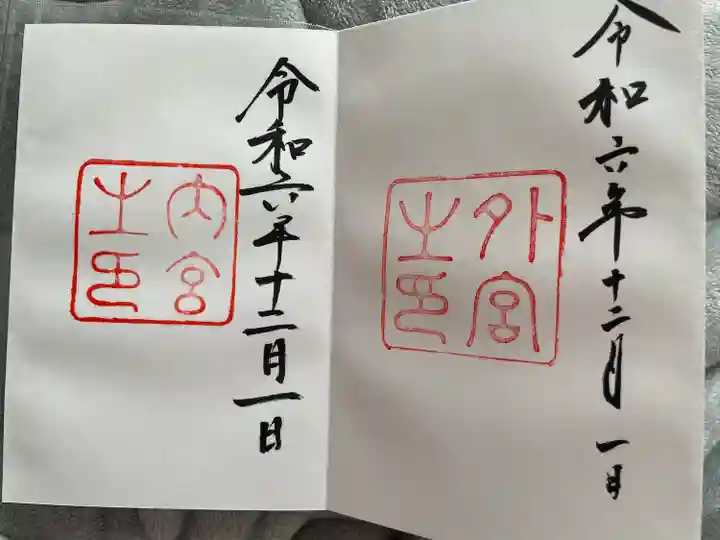 令和六年十二月一日
外宮
之印
令和六年十二月一日
内宮
之印